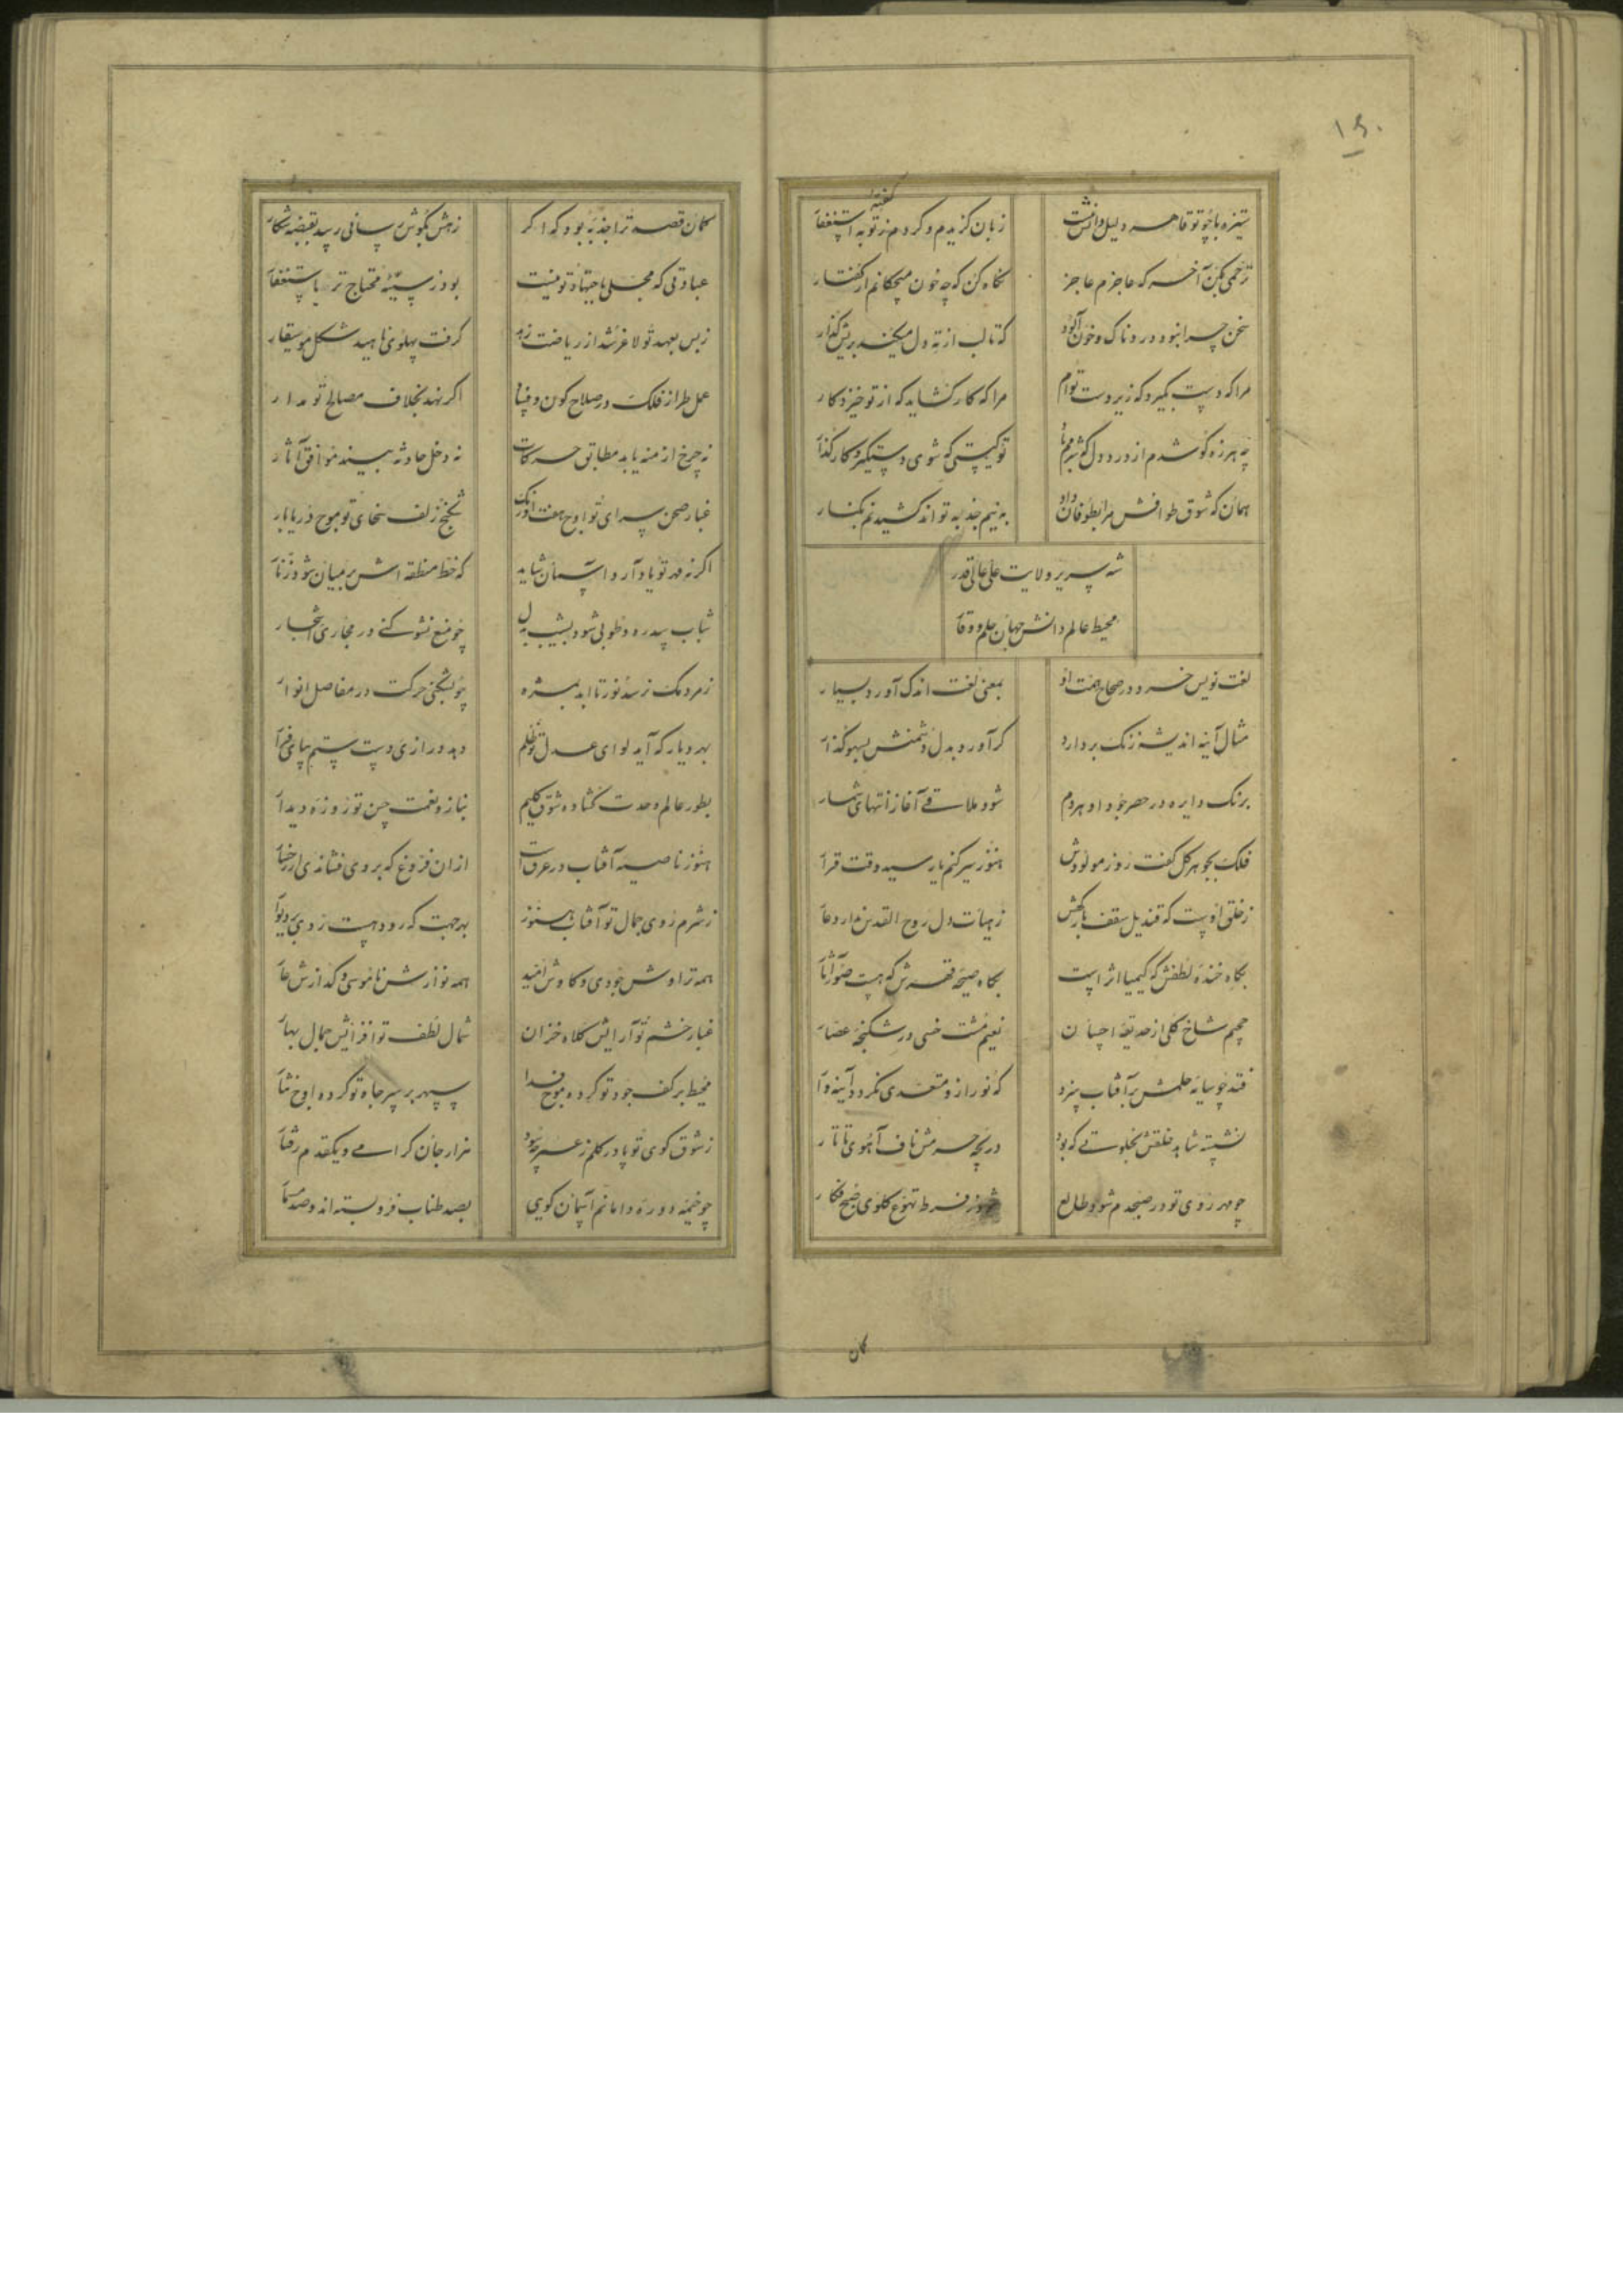 ۱۶۰
ستیزه با چو تو قاهر دلیل دانش نیست
زبان گزیدم و کردم ز توبه استغفار
ترحمی بکن آخر که عاجزم عاجز
نگاه کن که چه خون میچکانم از گفتار
سخن چرا نبود دردناک و خون آلود
که تا لب از ته دل میکند بریش گذار
مرا که دست بگیرد که زیردست توام
مرا که کار گشاید که از تو خیزد کار
چه هرزه گو شدم از درد دل که شرمم باد
تو کیستی که شوی دستگیر و کارگذار
همان که شوق طوافش مرا بطوفان داد
به نیم جذبه تواند کشیدنم بکنار
شه سریر ولایت علی عالی قدر
محیط عالم دانش جهان حلم و وقار
لغت نویس خرد در صحاح همت او
بمعنی لغت اندک آورد بسیار
مثال آینه اندیشه زنگ بردارد
گر آورد بدل دشمنش بسهو گذار
برنگ دایره در حصر جود او هردم
شود ملاقی آغاز انتهای شمار
فلک بجوهر کل گفت روز مولودش
هنوز سیر کنم یا رسید وقت قرار
ز خلق اوست که قندیل سقف بارگهش
ز هیأت دل روح القدس ندارد عار
بگاه خنده لطفش که کیمیا اثر است
بگاه صیحه قهرش که هست صور آثار
جحیم شاخ گلی از حدیقه احسان
نعیم مشت خسی در شکنجه عصار
فتد چو سایه حلمش بر آفتاب سزد
که نور ازو متعدی نگردد آینه وار
نشسته شاهد خلقش بخلوتی که بود
دریچه حرمش ناف آهوی تاتار
چو مهر روی تو در صبحدم شود طالع
شود ز فرط تهوع گلوی صبح فکار
کمان
کمان قصد ترا جذبه بود که اگر
زهش بگوش رسانی رسد بقبضه شکار
عبادتی که محلی باجتهاد تو نیست
بود ز سیئه محتاج تر باستغفار
ز بس بعهد تو لاغر شد از ریاضت زهد
گرفت پهلوی ناهید شکل موسیقار
عمل طراز فلک در صلاح کون و فساد
اگر نهد بخلاف مصالح تو مدار
نه چرخ ازمنه یابد مطابق حرکات
نه دخل حادثه بیند موافق آثار
غبار صحن سرای تو اوج هفت اورنگ
شکنج زلف سخای تو موج دریابار
اگر نه مهر تو یاد آرد آسمان شاید
که خط منطقه اش بر میان شود زنار
شباب سدره و طوبی شود بشیب بدل
چو منع نشو کنی در مجاری اشجار
ز مردمک نرسد نور تا ابد بمژه
چو بشکنی حرکت در مفاصل انوار
بهر دیار که آید لوای عدل تو ظلم
دهد درازی دست ستم بپای فرار
بطور عالم وحدت گشاده شوق کلیم
بناز و نعمت حسن تو روزه دیدار
هنوز ناصیه آفتاب در عرق است
از آن فروغ که بر وی فشاندی از رخسار
ز شرم روی جمال تو آفتاب هنوز
بهر جهت که رود هست روی بر دیوار
همه تراوش جودی و کاوش امید
همه نوازش ناموسی و گدازش عار
غبار خشم تو آرایش کلاه خزان
شمال لطف تو افزایش جمال بهار
محیط بر کف جود تو کرده موج فدا
سپهر بر سر جاه تو کرده اوج نثار
ز شوق کوی تو پا در گلم ز عمر چه سود
هزار جان گرامی و یکقدم رفتار
چو خیمه دوره دامانم آسمان گویی
بصد طناب فرو بسته اند و صد مسمار